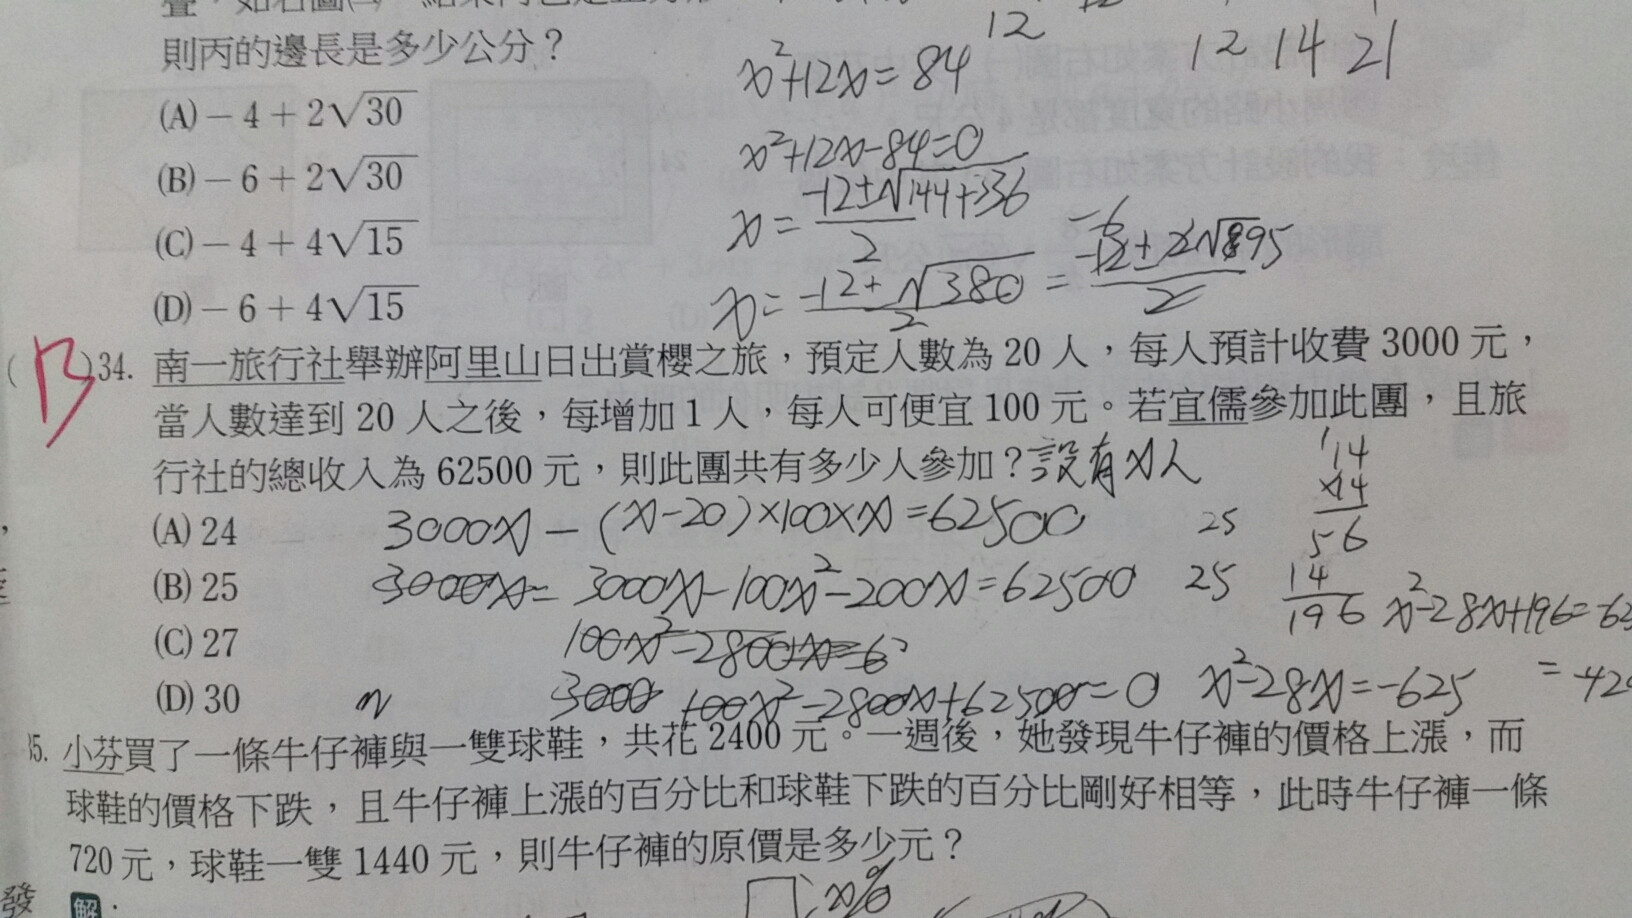 則丙的邊長是多少公分？
12
12 14 21
x²+12x=84
(A) －4＋2√30
x²+12x-84=0
(B) －6＋2√30
x=(-12±√144+336)/2
(C) －4＋4√15
(D) －6＋4√15
(B)34. 南一旅行社舉辦阿里山日出賞櫻之旅，預定人數為 20 人，每人預計收費 3000 元，
當人數達到 20 人之後，每增加 1 人，每人可便宜 100 元。若宜儒參加此團，且旅
行社的總收入為 62500 元，則此團共有多少人參加？設有x人
14
×14
56
14
196
(A) 24
3000x-(x-20)×100×x=62500
25
(B) 25
3000x= 3000x-100x²-200x=62500
25
x²-28x+196=
(C) 27
100x²-2800x=6
(D) 30
3000 100x²-2800x+62500=0
x²-28x=-625
35. 小芬買了一條牛仔褲與一雙球鞋，共花 2400 元。一週後，她發現牛仔褲的價格上漲，而
球鞋的價格下跌，且牛仔褲上漲的百分比和球鞋下跌的百分比剛好相等，此時牛仔褲一條
720 元，球鞋一雙 1440 元，則牛仔褲的原價是多少元？
發
解：
x%